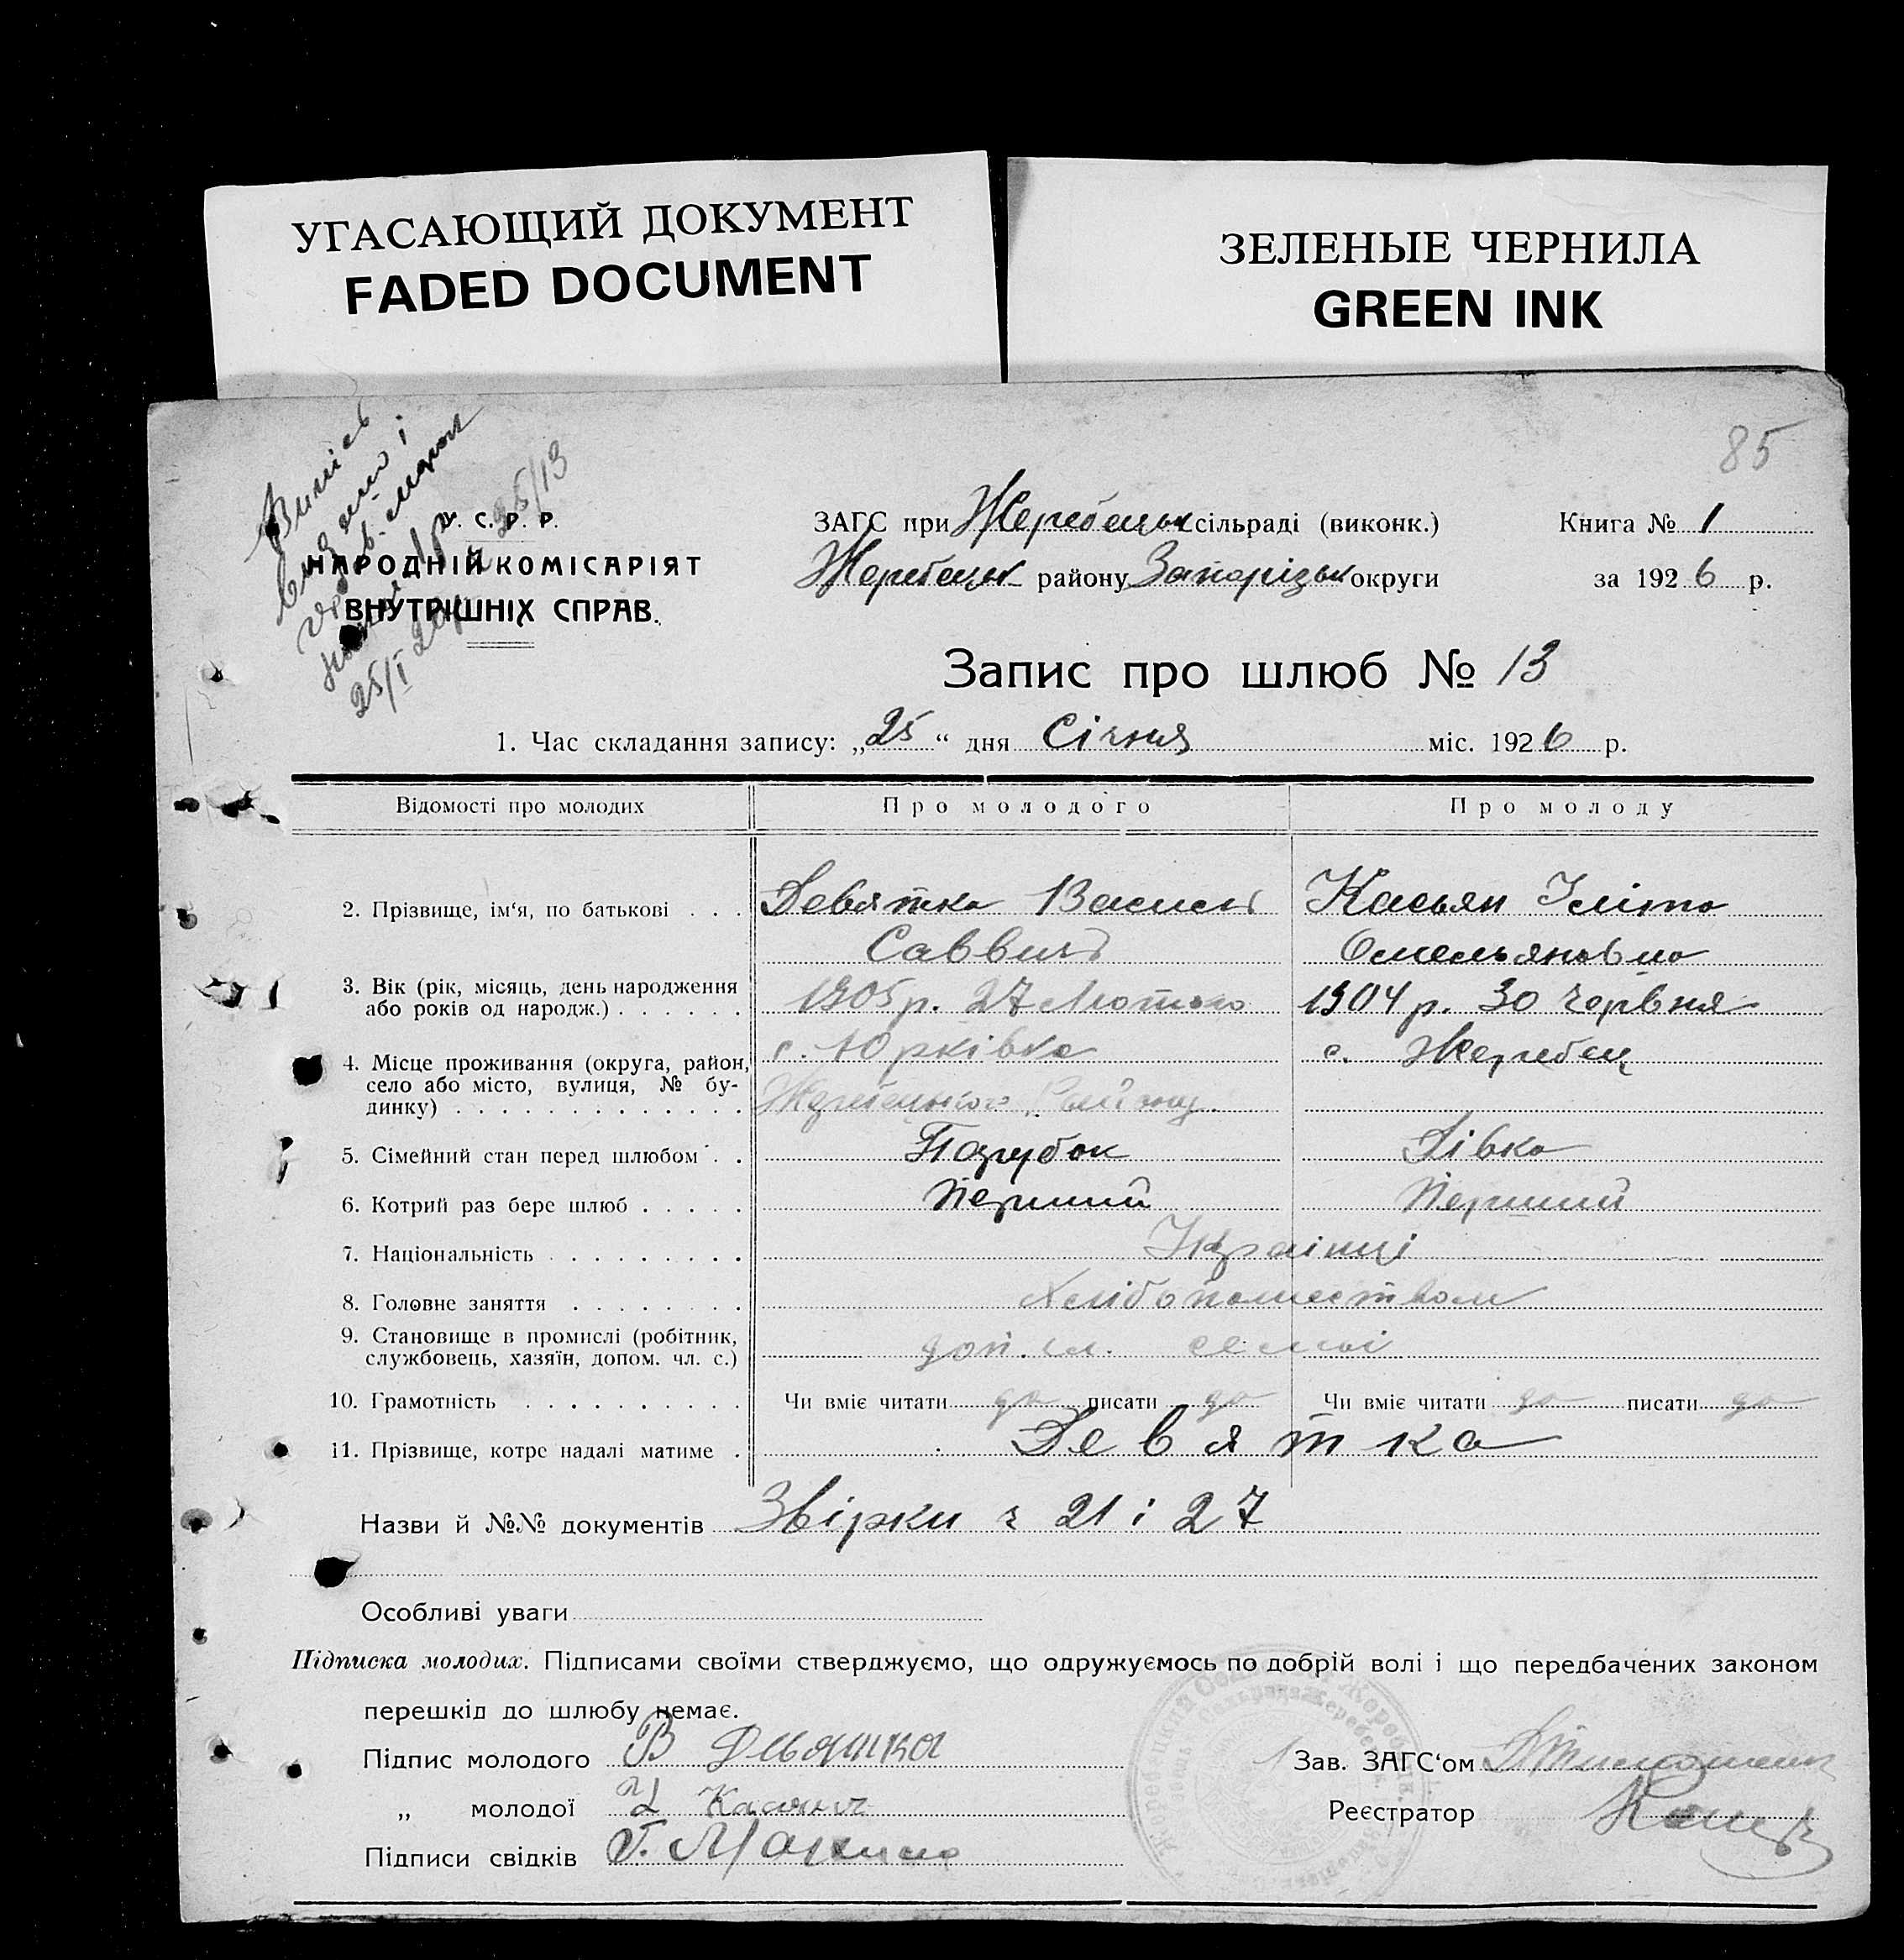 УГАСАЮЩИЙ ДОКУМЕНТ
FADED DOCUMENT
ЗЕЛЕНЫЕ ЧЕРНИЛА
GREEN INK
85
25/I 26р. 25/13
У. С. Р. Р.
НАРОДНІЙ КОМІСАРІЯТ
ВНУТРІШНІХ СПРАВ.
ЗАГС при Жеребецьк сільраді (виконк.) Книга № 1
Жеребецьк району Запорізьк округи за 1926 р.
Запис про шлюб № 13
1. Час складання запису: „25“ дня Січня міс. 1926 р.
Відомості про молодих Про молодого Про молоду
2. Прізвище, ім‘я, по батькові . . . Девятка Василь Касьян Уліта
Саввич Омельяновна
3. Вік (рік, місяць, день народження 1905 р. 27 Лютого 1904 р. 30 червня
або років од народж.) . . . . . .
4. Місце проживання (округа, район, с. Юрківка с. Жеребец
село або місто, вулиця, № бу-
динку) . . . . . . . . . . . . . Жеребецького Району.
5. Сімейний стан перед шлюбом . . Парубок Дівка
6. Котрий раз бере шлюб . . . . . Перший Перший
7. Національність . . . . . . . . . Українці
8. Головне заняття . . . . . . . .
9. Становище в промислі (робітник,
службовець, хазяїн, допом. чл. с.) доп. чл. семьі
10. Грамотність . . . . . . . . . . Чи вміє читати да писати да Чи вміє читати да писати да
11. Прізвище, котре надалі матиме . Девятка
Назви й №№ документів Звірки ч 21 і 27
Особливі уваги
Підписка молодих. Підписами своїми стверджуємо, що одружуємось по добрій волі і що передбачених законом
перешкід до шлюбу немає.
Підпис молодого В Девятка
Зав. ЗАГС‘ом
„ молодої У Касян
Реєстратор
Підписи свідків Г.